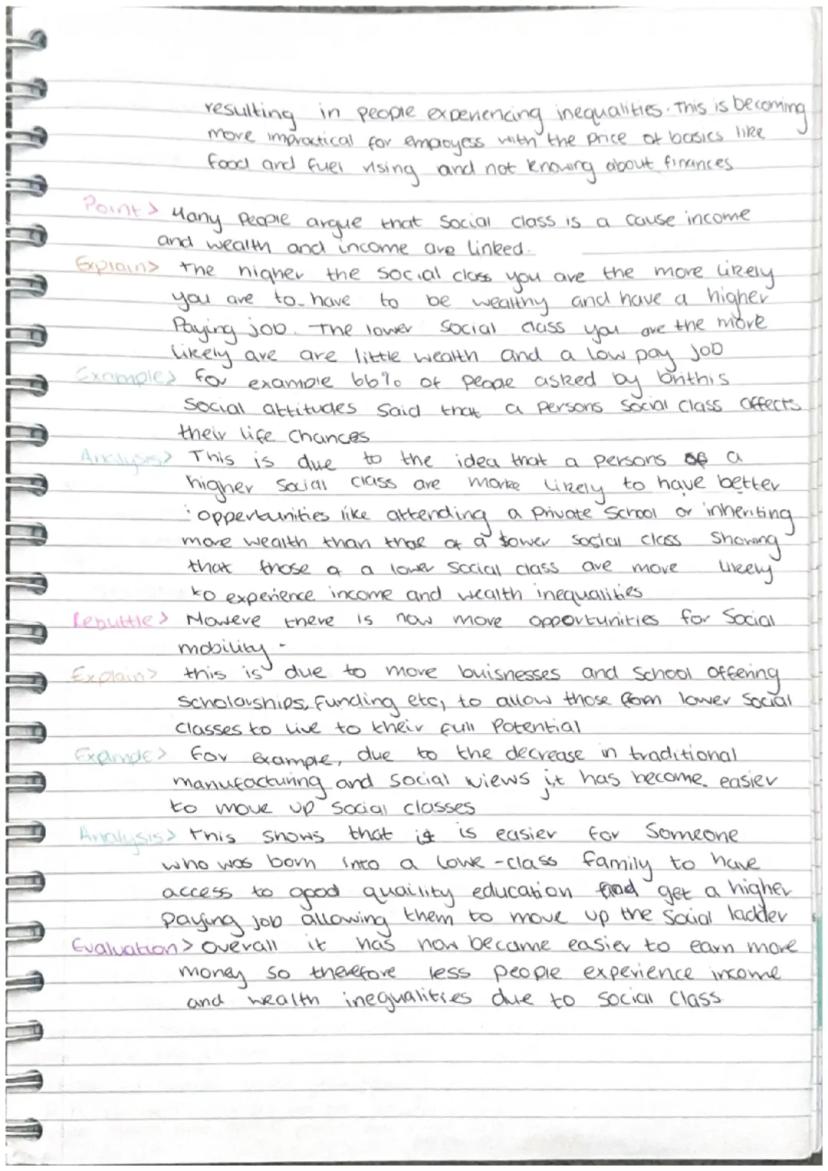 resulting in people experiencing inequalities. This is becoming
more impractical for employess with the price of basics like
food and fuel rising and not knowing about finances
Point > Many people argue that social class is a cause income
and wealth and income are linked.
Explain> The higher the social class you are the more likely
you are to have to be wealthy and have a higher
paying job. The lower social class you are the more
likely are are little wealth and a low pay job
Example> for example 66% of people asked by british
social attitudes said that a persons social class affects
their life chances
Analysis> This is due to the idea that a persons of a
higher social class are more likely to have better
oppertunities like attending a private school or inheriting
more wealth than that of a lower social class showing
that those of a lower social class are more likely
to experience income and wealth inequalities
Rebuttle> Howevre there is now more opportunities for social
mobility -
Explain> this is due to more buisnesses and school offering
scholarships, funding etc, to allow those from lower social
classes to live to their full potential
Example> for example, due to the decrease in traditional
manufacturing and social views it has become easier
to move up social classes
Analysis> this shows that it is easier for someone
who was born into a lowe-class family to have
access to good quaility education and get a higher
paying job allowing them to move up the social ladder
Evaluation> overall it has now became easier to earn more
money so therefore less people experience income
and wealth inequalities due to social class